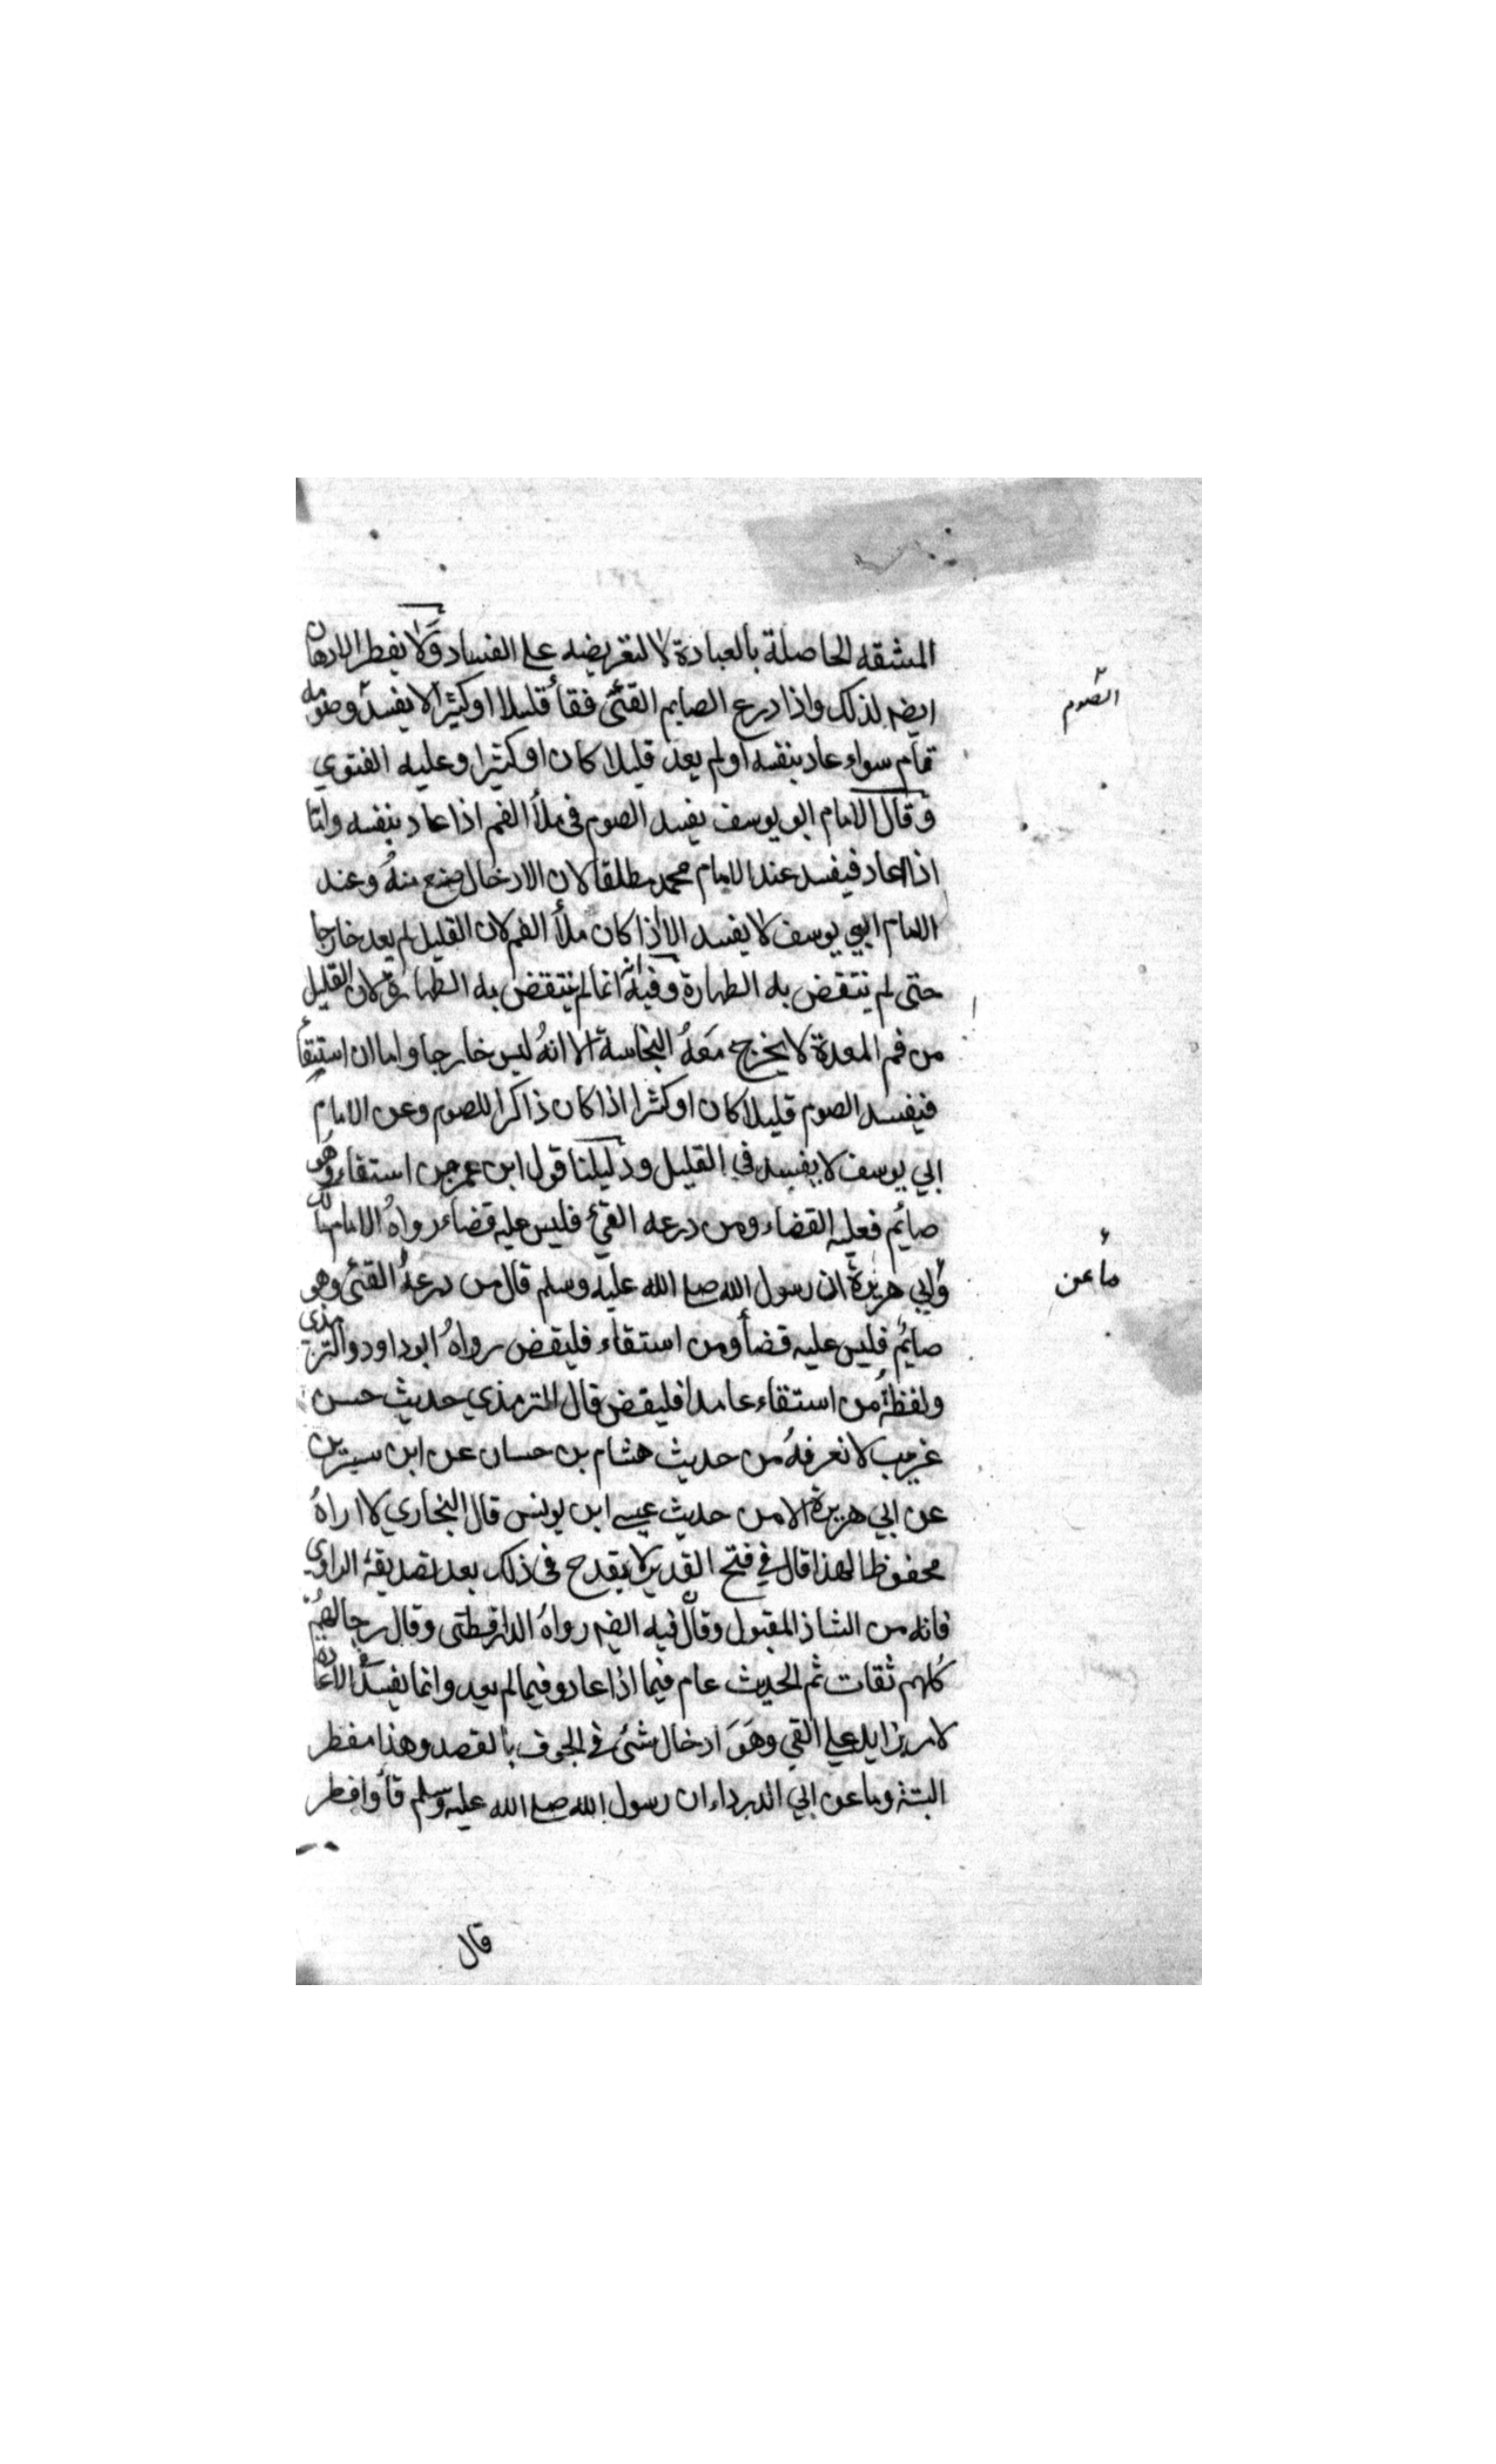 المشقه الحاصلة بالعبادة لا لتعريضه علي الفساد ولا يفطر الادهان
ايضه لذلك واذا درع الصايم القئ فقأ قليلا او كثيرا لا يفسد وصومه
الصوم
تمام سواء عاد بنفسه او لم يعد قليلا كان او كثيرا وعليه الفتوي
وقال الامام ابو يوسف يفسد الصوم في ملأ الفم اذا عاد بنفسه واما
اذا اعاد فيفسد عند الامام محمد مطلقا لان الادخال صنع منه وعند
الامام ابي يوسف لا يفسد الا اذا كان ملأ الفم لان القليل لم يعد خارجا
حتى لم ينتقض به الطهارة وفيه انه انما لم ينتقض به الطهارة لان القليل
من فم المعدة لا يخرج معه النجاسة الا انه ليس خارجا واما ان استقأ
فيفسد الصوم قليلا كان او كثرا اذا كان ذاكرا للصوم وعن الامام
ابي يوسف لا يفسد في القليل ودليلنا قول ابن عمر من استقاء وهو
صائم فعليه القضاء ومن درعه القئ فليس عليه قضاء رواه الامام مالك
وابي هريرة ان رسول الله صلى الله عليه وسلم قال من درعه القئ وهو
ما عن
صايم فليس عليه قضأ ومن استقاء فليقض رواه ابو داود والترمذي
ولفظه من استقاء عامدا فليقض قال الترمذي حديث حسن
غريب لا نعرفه من حديث هشام بن حسان عن ابن سيرين
عن ابي هريرة الا من حديث عيسى ابن يونس قال البخاري لا اراه
محفوظا لهذا قال في فتح القدير لا يقدح في ذلك بعد تصديقه الراوي
فانه من الشاذ المقبول وقال فيه ايضه رواه الدارقطني وقال رجالهم
كلهم ثقات ثم الحديث عام فيما اذا عاد وفيما لم يعد وانما يفسد في الاعادة
لامر زايد علي القي وهو ادخال شئ في الجوف بالقصد وهذا مفطر
البتة وما عن ابي الدرداء ان رسول الله صلى الله عليه وسلم قأ وافطر
قال